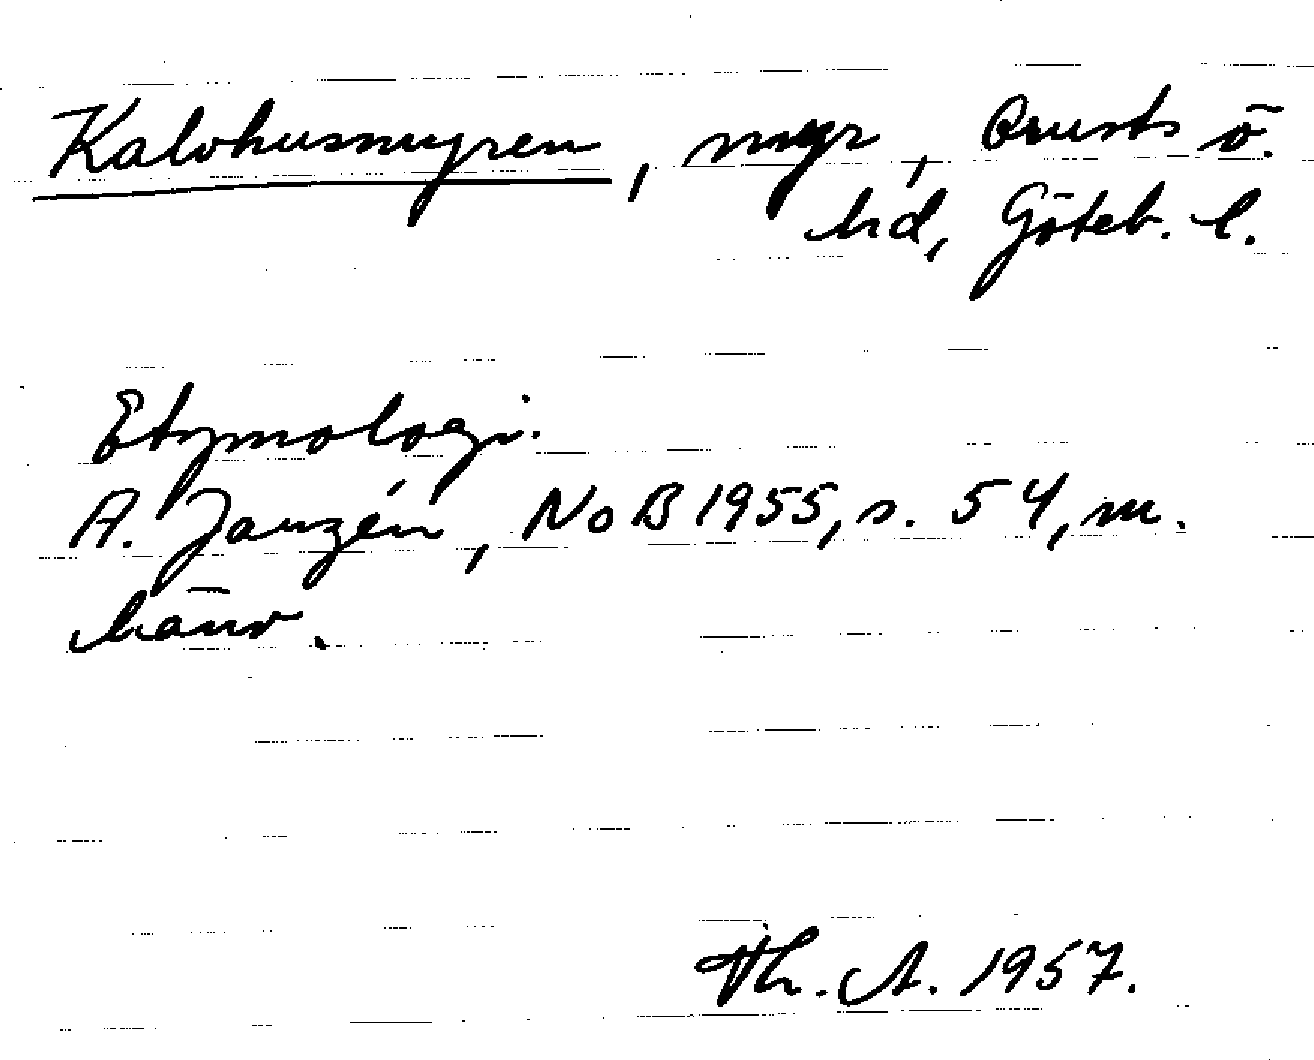 Kalvhusmyren, myr, Orusts ö.
hd, Göteb. l.
Etymologi.
A. Janzén, NoB 1955, s. 54, m.
hänv.
Th. A. 1957.